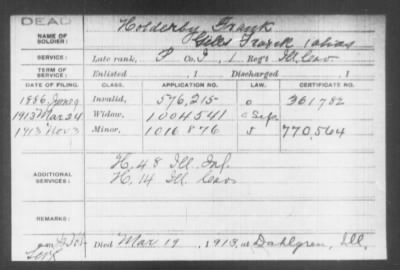 DEAD
NAME OF SOLDIER: Holderby Frank
Giles Frank (alias
SERVICE: Late rank, P Co. I, 1 Reg't Ill. Cav.
TERM OF SERVICE: Enlisted , 1 Discharged , 1
DATE OF FILING. CLASS. APPLICATION NO. LAW. CERTIFICATE NO.
1886 June 9 Invalid, 576,215 361,782
1913 Mar 24 Widow, 1004541
1913 Nov 3 Minor, 1016876 770,564
ADDITIONAL SERVICES: H. 48 Ill. Inf.
H. 14 Ill. Cav.
REMARKS:
Died Mar 19, 1913, at Dahlgren, Ill.